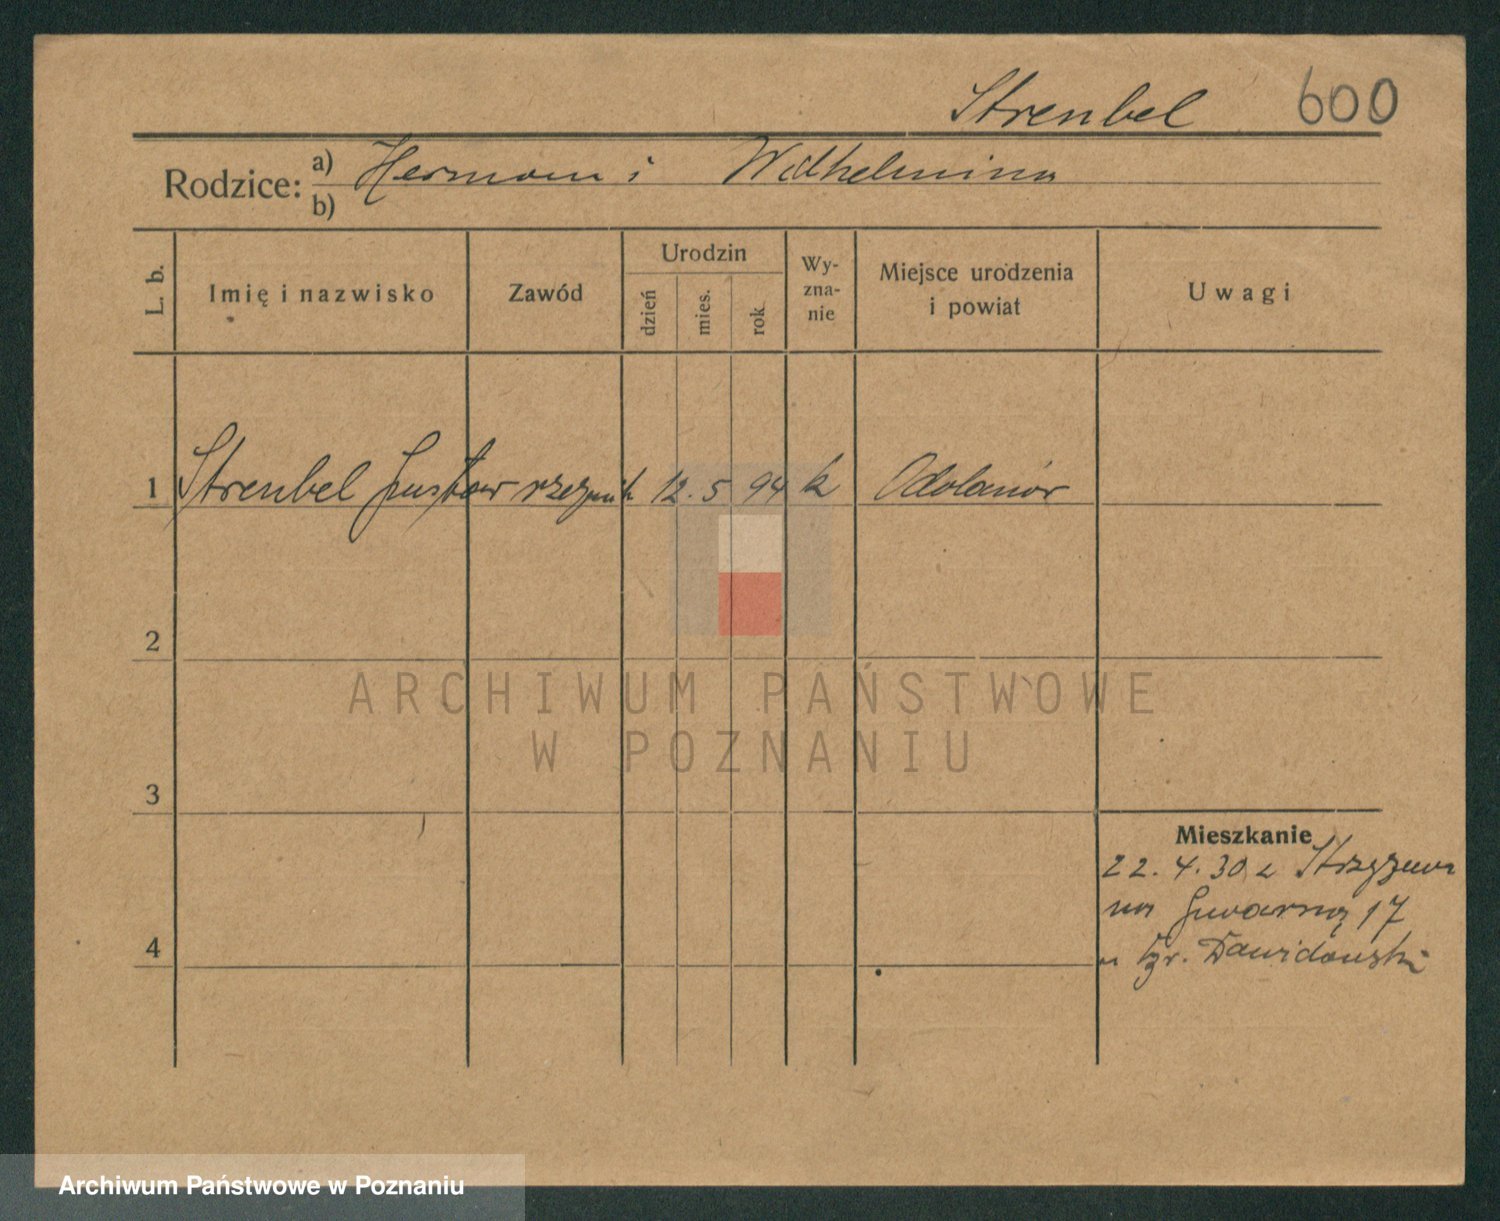 Strenbel 600
Rodzice: a) Herman i Wilhelmina
b)
L. b. Imię i nazwisko Zawód Urodzin dzień mies. rok Wy-zna-nie Miejsce urodzenia i powiat Uwagi
1 Strenbel Gustaw rzeźnik 12. 5 94 k Odolanów
2
ARCHIWUM PAŃSTWOWE
W POZNANIU
3
Mieszkanie
22. 4. 30 z Strzyżewa
na Gwarną 17
4
u Dawidowski
Archiwum Państwowe w Poznaniu